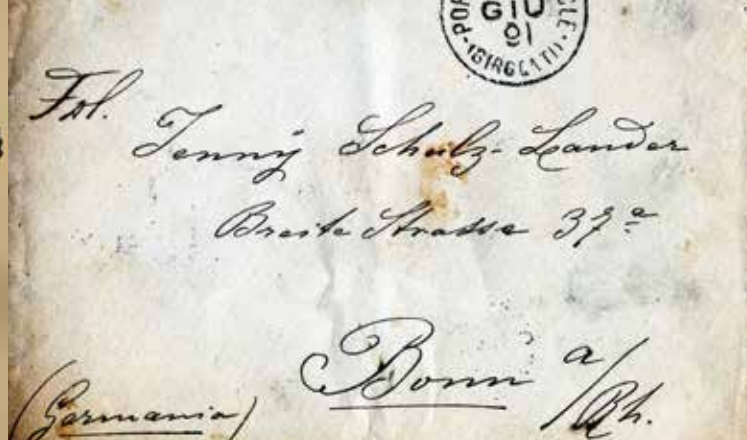 GIU
91
(GIRGENTI)
Frl.
Jenny Schulz-Lander
Breite Strasse 37ª
Bonn a/Rh.
(Germania)